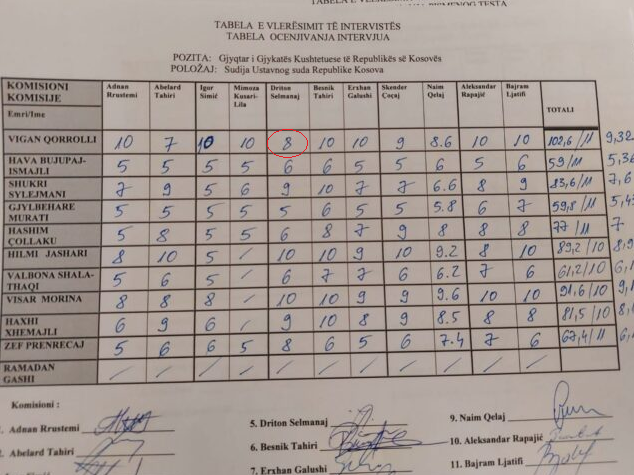 TABELA E VLERËSIMIT TË INTERVISTËS
TABELA OCENJIVANJA INTERVJUA
POZITA: Gjyqtar i Gjykatës Kushtetuese të Republikës së Kosovës
POLOŽAJ: Sudija Ustavnog suda Republike Kosova
KOMISIONI KOMISIJE Emri/Ime Adnan Rrustemi Abelard Tahiri Igor Simić Mimoza Kusari-Lila Driton Selmanaj Besnik Tahiri Erxhan Galushi Skender Coçaj Naim Qelaj Aleksandar Rapajić Bajram Ljatifi TOTALI
VIGAN QORROLLI 10 7 10 10 8 10 10 9 8.6 10 10 102,6/11 9,32
HAVA BUJUPAJ-ISMAJLI 5 5 5 5 6 6 5 5 6 5 6 59/11 5,36
SHUKRI SYLEJMANI 7 9 5 6 9 10 7 7 6.6 8 9 83,6/11 7,6
GJYLBEHARE MURATI 5 5 5 5 5 6 5 5 5.8 6 7 59,8/11
HASHIM COLLAKU 5 8 5 5 6 8 7 9 8 8 8 77/11 7
HILMI JASHARI 8 10 5 / 10 10 9 10 9.2 8 10 89,2/10
VALBONA SHALA-THAQI 5 6 5 / 6 7 7 6 6.2 7 6 61,2/10
VISAR MORINA 8 8 8 / 10 10 9 9 9.6 10 10 91,6/10
HAXHI XHEMAJLI 6 9 6 / 9 10 8 9 8.5 8 8 81,5/10
ZEF PRENRECAJ 5 6 6 5 8 6 5 6 7.4 7 6 67,4/11
RAMADAN GASHI / / / / / / / / / / /
Komisioni :
Adnan Rrustemi 5. Driton Selmanaj 9. Naim Qelaj
Abelard Tahiri 6. Besnik Tahiri 10. Aleksandar Rapajić
7. Erxhan Galushi 11. Bajram Ljatifi